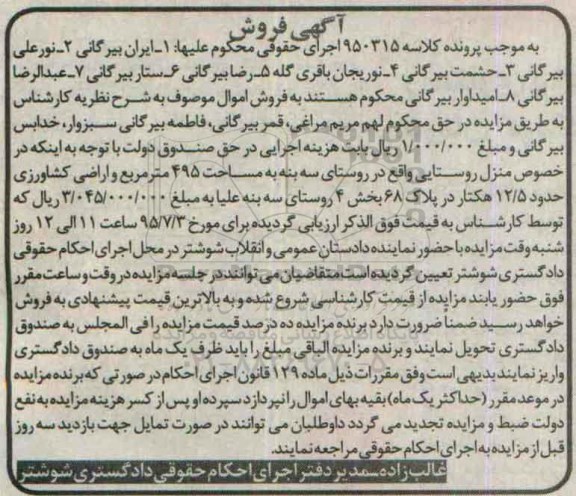 آگهی فروش
به موجب پرونده کلاسه ۹۵۰۳۱۵ اجرای حقوقی محکوم علیها: ۱ـ ایران بیرگانی ۲ـ نورعلی
بیرگانی ۳ـ حشمت بیرگانی ۴ـ نوریجان باقری گله ۵ـ رضا بیرگانی ۶ـ ستار بیرگانی ۷ـ عبدالرضا
بیرگانی ۸ـ امیداوار بیرگانی محکوم هستند به فروش اموال موصوف به شرح نظریه کارشناس
به طریق مزایده در حق محکوم لهم مریم مراغی، قمر بیرگانی، فاطمه بیرگانی سبزوار، خدابس
بیرگانی و مبلغ ۱/۰۰۰/۰۰۰ ریال بابت هزینه اجرایی در حق صندوق دولت با توجه به اینکه در
خصوص منزل روستایی واقع در روستای سه بنه به مساحت ۴۹۵ مترمربع و اراضی کشاورزی
حدود ۱۲/۵ هکتار در پلاک ۶۸ بخش ۴ روستای سه بنه علیا به مبلغ ۳/۰۴۵/۰۰۰/۰۰۰ ریال که
توسط کارشناس به قیمت فوق الذکر ارزیابی گردیده برای مورخ ۹۵/۷/۳ ساعت ۱۱ الی ۱۲ روز
شنبه وقت مزایده با حضور نماینده دادستان عمومی و انقلاب شوشتر در محل اجرای احکام حقوقی
دادگستری شوشتر تعیین گردیده است متقاضیان می توانند در جلسه مزایده در وقت و ساعت مقرر
فوق حضور یابند مزایده از قیمت کارشناسی شروع شده و به بالاترین قیمت پیشنهادی به فروش
خواهد رسید ضمناً ضرورت دارد برنده مزایده ده درصد قیمت مزایده را فی المجلس به صندوق
دادگستری تحویل نمایند و برنده مزایده الباقی مبلغ را باید ظرف یک ماه به صندوق دادگستری
واریز نمایند بدیهی است وفق مقررات ذیل ماده ۱۲۹ قانون اجرای احکام در صورتی که برنده مزایده
در موعد مقرر (حداکثر یک ماه) بقیه بهای اموال را نپردازد سپرده او پس از کسر هزینه مزایده به نفع
دولت ضبط و مزایده تجدید می گردد داوطلبان می توانند در صورت تمایل جهت بازدید سه روز
قبل از مزایده به اجرای احکام حقوقی مراجعه نمایند.
غالب زاده ـ مدیر دفتر اجرای احکام حقوقی دادگستری شوشتر